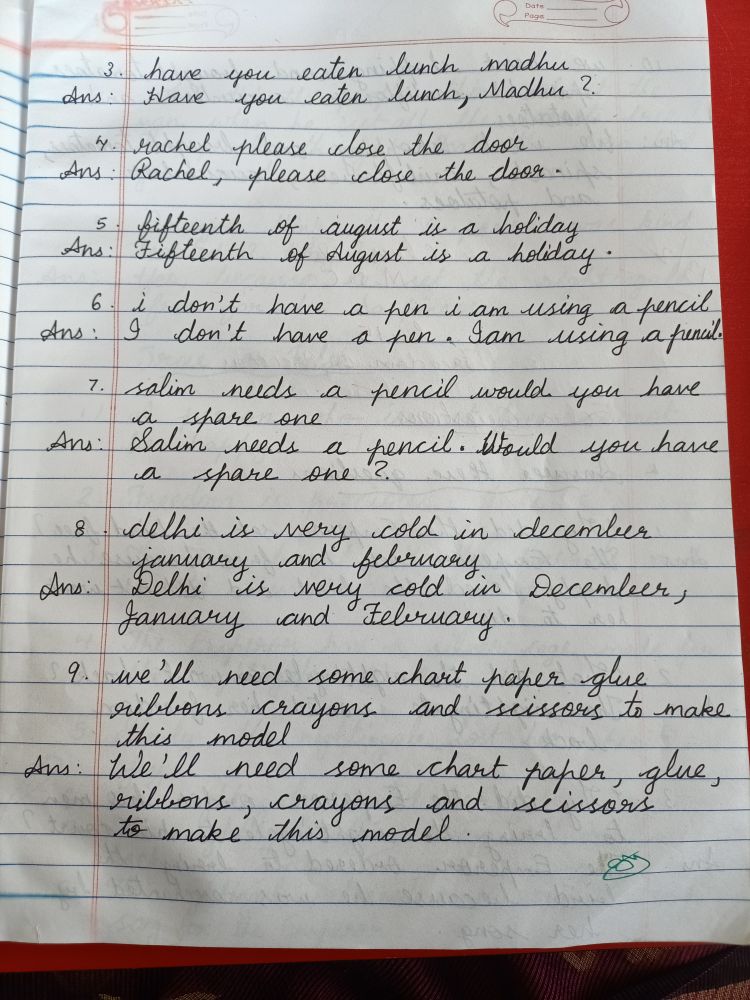 Date
Page
3. have you eaten lunch madhu
Ans: Have you eaten lunch, Madhu?
4. rachel please close the door
Ans: Rachel, please close the door.
5. fifteenth of august is a holiday
Ans: Fifteenth of August is a holiday.
6. i don't have a pen i am using a pencil
Ans: I don't have a pen. I am using a pencil.
7. salim needs a pencil would you have
a spare one
Ans: Salim needs a pencil. Would you have
a spare one?
8. delhi is very cold in december
january and february
Ans: Delhi is very cold in December,
January and February.
9. we'll need some chart paper glue
ribbons crayons and scissors to make
this model
Ans: We'll need some chart paper, glue,
ribbons, crayons and scissors
to make this model.